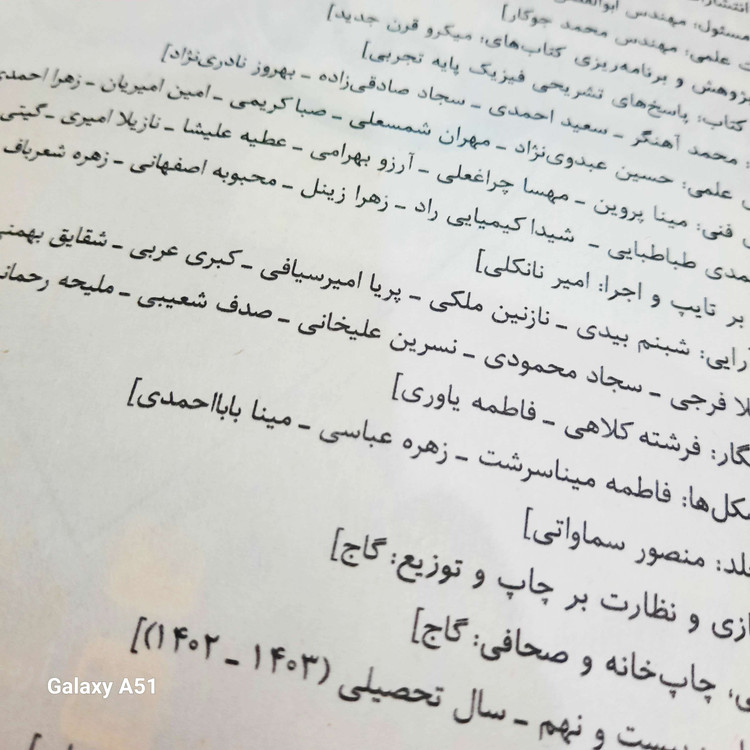 مسئول: مهندس
علمی: مهندس محمد جوکار]
پژوهش و برنامه‌ریزی کتاب‌های: میکرو قرن جدید]
کتاب: پاسخ‌های تشریحی فیزیک پایه تجربی]
محمد آهنگر ـ سعید احمدی ـ سجاد صادقی‌زاده ـ بهروز نادری‌نژاد]
علمی: حسین عبدوی‌نژاد ـ مهران شمسعلی ـ صبا کریمی ـ امین امیریان ـ زهرا
فنی: مینا پروین ـ مهسا چراغعلی ـ آرزو بهرامی ـ عطیه علیشا ـ نازیلا امیری ـ گیتی
طباطبایی ـ شیدا کیمیایی راد ـ زهرا زینل ـ محبوبه اصفهانی ـ زهره شعرباف
بر تایپ و اجرا: امیر نانکلی]
شبنم بیدی ـ نازنین ملکی ـ پریا امیرسیافی ـ کبری عربی ـ شقایق
فرجی ـ سجاد محمودی ـ نسرین علیخانی ـ صدف شعیبی ـ ملیحه
فرشته کلاهی ـ فاطمه یاوری]
فاطمه میناسرشت ـ زهره عباسی ـ مینا بابااحمدی]
منصور سماواتی]
و نظارت بر چاپ و توزیع: گاج]
چاپ‌خانه و صحافی: گاج]
و نهم ـ سال تحصیلی (۱۴۰۳ ـ ۱۴۰۲)]
Galaxy A51